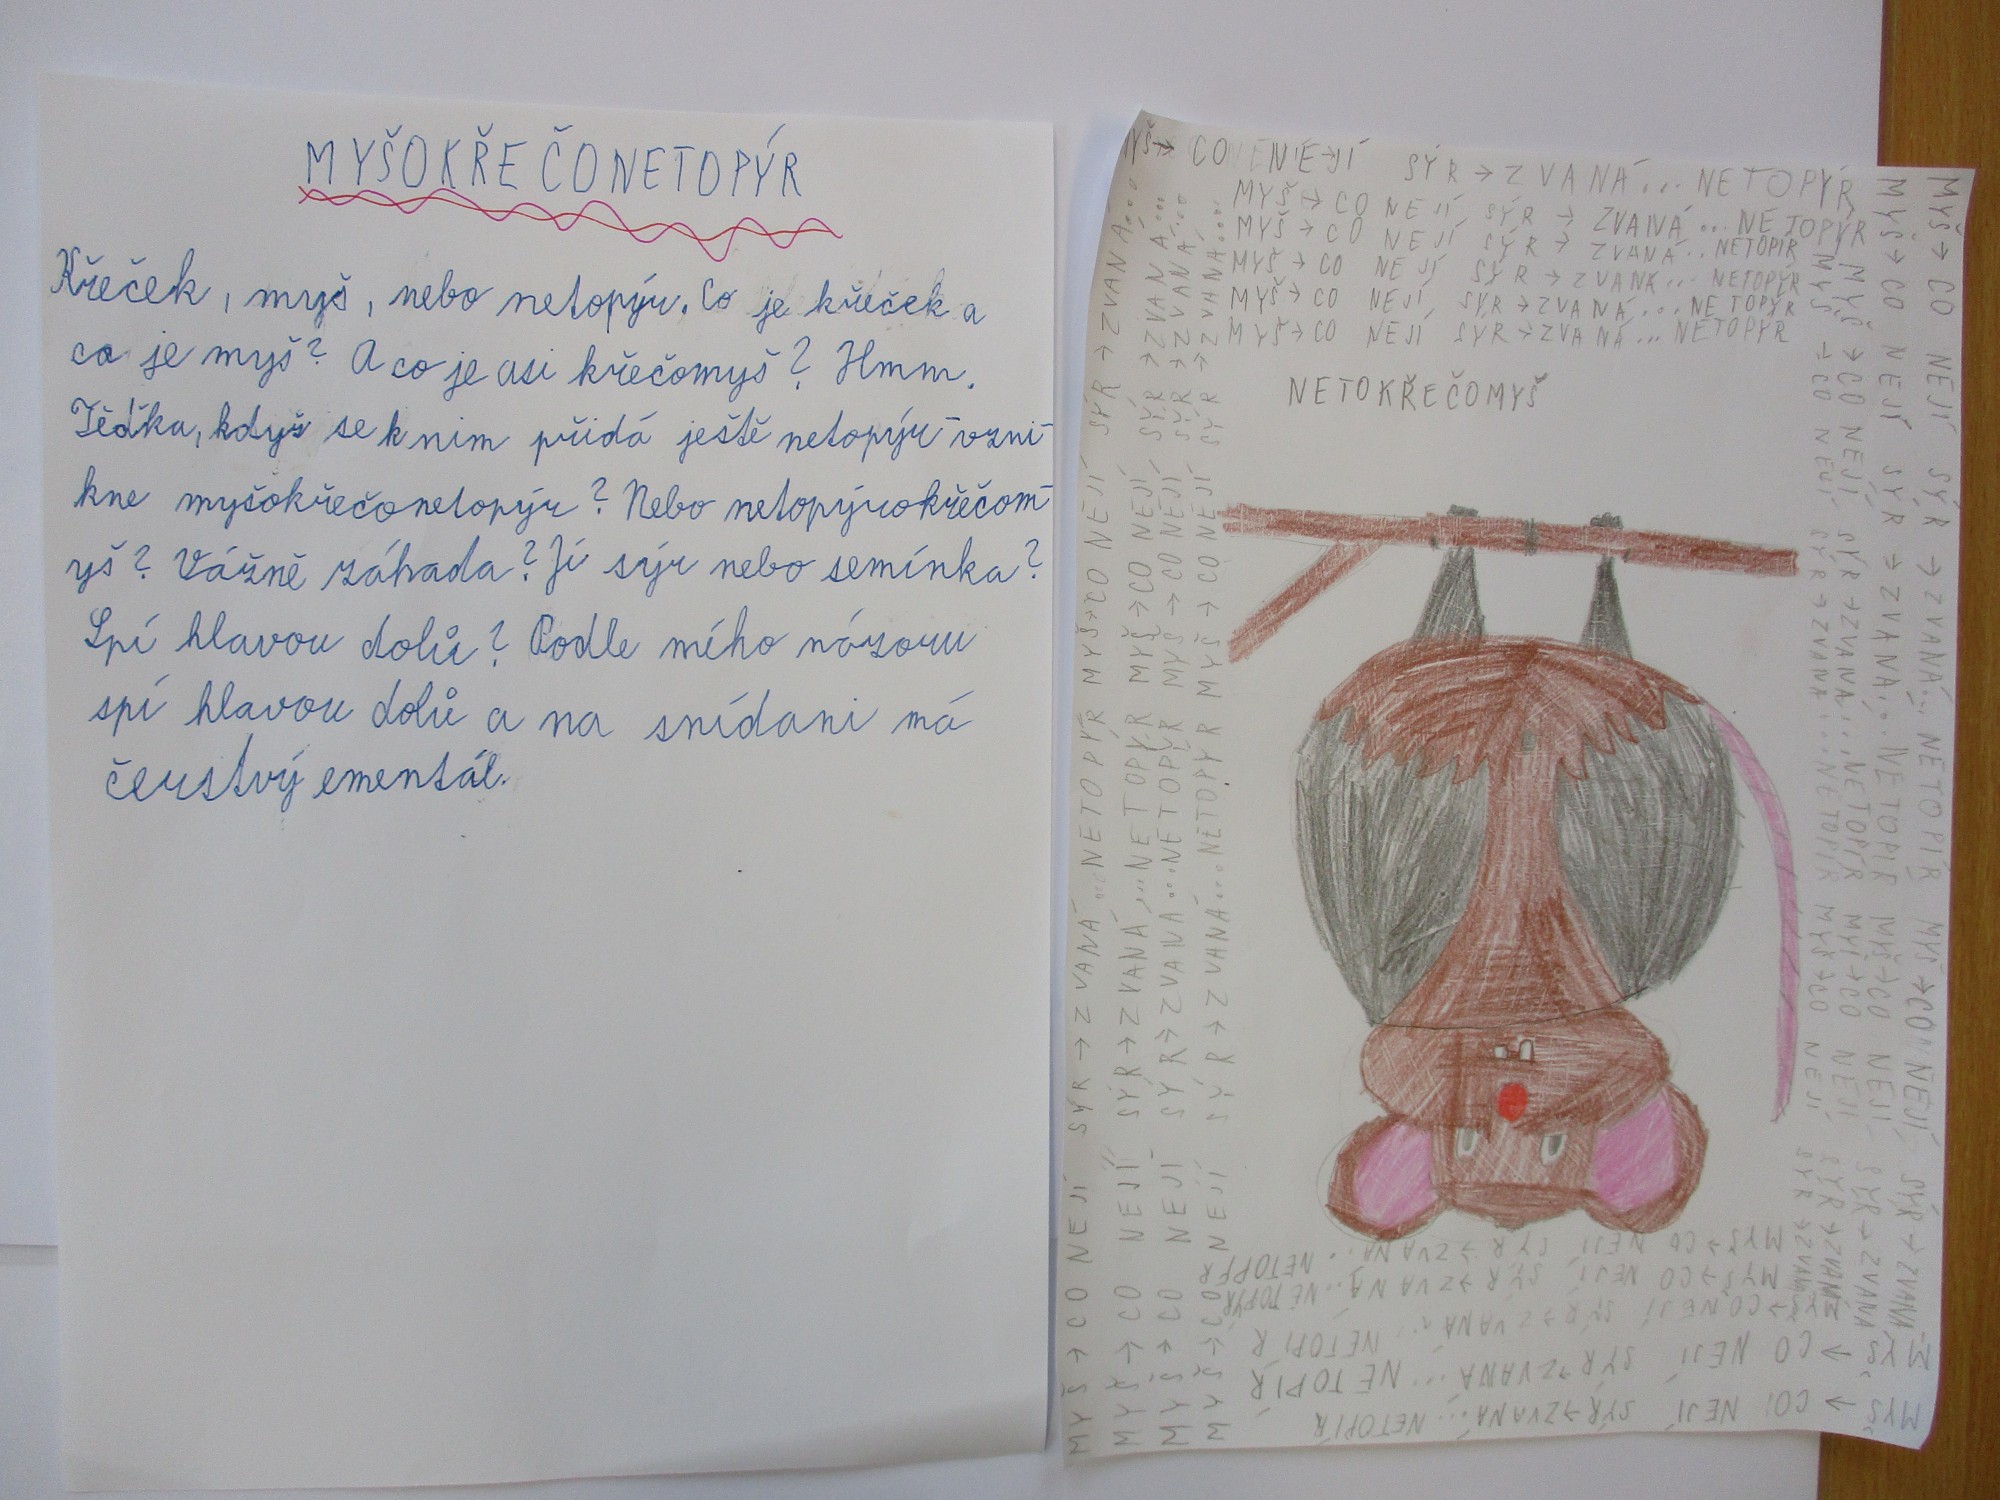 MYŠOKŘEČONETOPÝR
Křeček, myš, nebo netopýr. Co je křeček a
co je myš? A co je asi křečomyš? Hmm.
Těďka, když se k nim přidá ještě netopýr - vzni-
kne myšokřečonetopýr? Nebo netopýrokřečom-
yš? Vážně záhada? Jí sýr nebo semínka?
Spí hlavou dolů? Podle mého názoru
spí hlavou dolů a na snídani má
čerstvý ementál.
MYŠ→ CO NEJÍ SÝR → ZVANÁ... NETOPÝR
MYŠ → CO NEJÍ SÝR → ZVANÁ... NETOPÝR
MYŠ → CO NEJÍ SÝR → ZVANÁ.. NETOPÍR
MYŠ → CO NEJÍ SÝR → ZVANÁ... NETOPÝR
MYŠ→CO NEJÍ SÝR→ZVANÁ...NETOPÝR
MYŠ→CO NEJÍ SÝR→ZVANÁ... NETOPÝR
NETOKŘEČOMYŠ
MYŠ→ CO NEJÍ SÝR → ZVANÁ...NETOPÝR MYŠ→CO NEJÍ SÝR→ZVANÁ...
MYŠ→CO NEJÍ SÝR→ZVANÁ...NETOPÝR MYŠ→CO NEJÍ SÝR→ZVANÁ...
MYŠ→CO NEJÍ SÝR→ZVANÁ...NETOPÝR MYŠ→CO NEJÍ SÝR→ZVANÁ...
MYŠ→CO NEJÍ SÝR→ZVANÁ...NETOPÝR MYŠ→CO NEJÍ SÝR→ZVANÁ...
MYŠ→CO NEJÍ SÝR →ZVANÁ... NETOPÍR MYŠ→CO NEJÍ SÝR→ZVANÁ
MYŠ→CO NEJÍ SÝR→ZVANÁ...NETOPÍR MYŠ→CO NEJÍ SÝR→ZVANÁ
MYŠ→CO NEJÍ SÝR→ZVANÁ...NETOPÍR MYŠ→CO NEJÍ SÝR→ZVANÁ
MYŠ→CO NEJÍ SÝR→ZVANÁ...NETOPÍR MYŠ→CO NEJÍ SÝR→ZVANÁ
MYŠ→CO NEJÍ SÝR→ZVANÁ.. NETOPÝR
MYŠ→CO NEJÍ SÝR→ZVANÁ...NETOPÝR
MYŠ→CO NEJÍ SÝR→ZVANÁ.. NETOPÍR
MYŠ → CO NEJÍ SÝR→ZVANÁ... NETOPÍR
MYŠ → CO NEJÍ SÝR→ZVANÁ... NETOPÍR